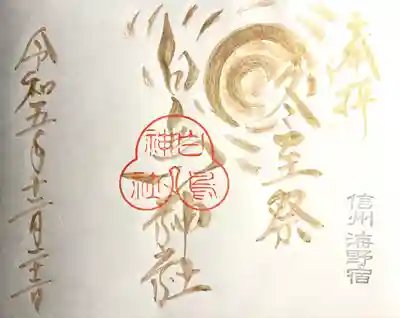 奉拝
冬至祭
信州 海野宿
白鳥神社
白鳥神社
令和五年十二月二十二日